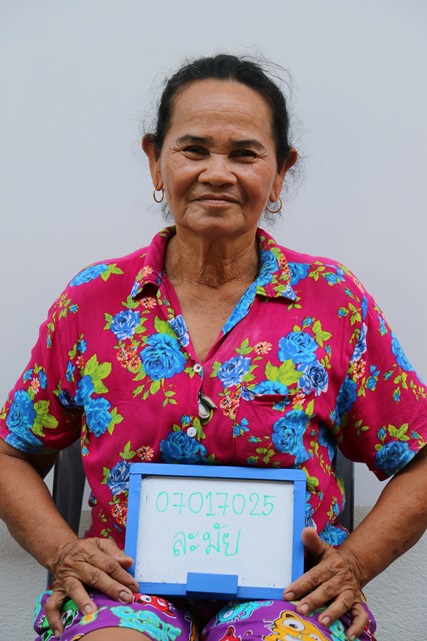 07017025
ละมัย